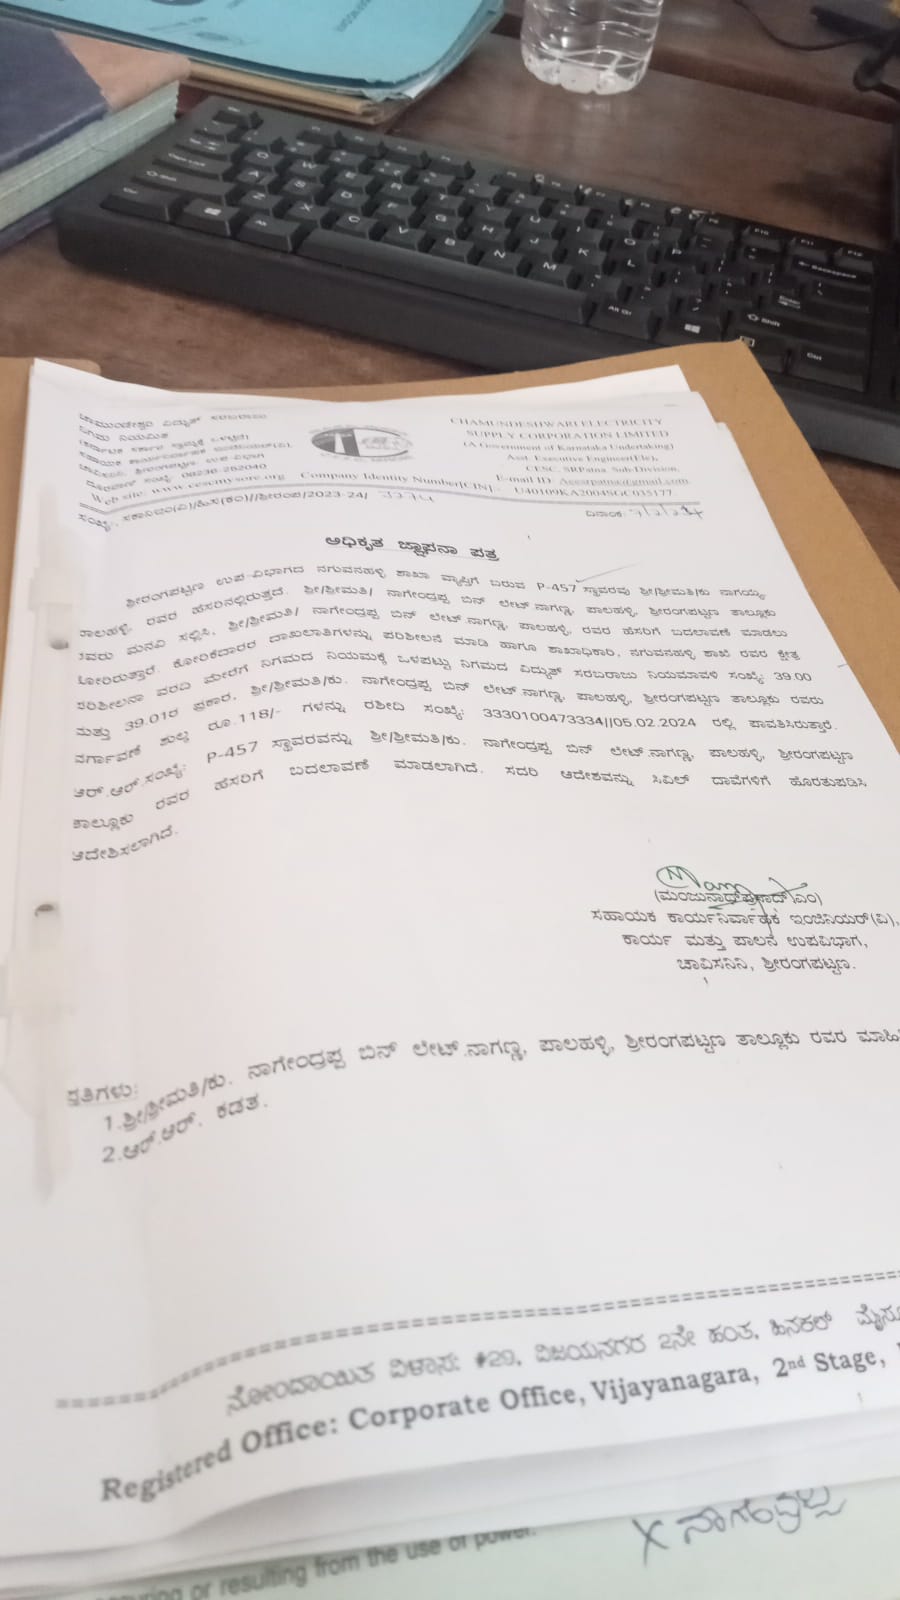 ಚಾಮುಂಡೇಶ್ವರಿ ವಿದ್ಯುತ್ ಸರಬರಾಜು
ನಿಗಮ ನಿಯಮಿತ
ದೂರವಾಣಿ ಸಂಖ್ಯೆ 08236-252040
CHAMUNDESHWARI ELECTRICITY
SUPPLY CORPORATION LIMITED
(A Government of Karnataka Undertaking)
Asst. Executive Engineer(Ele),
CESC, SRPatna Sub-Division,
E-mail ID: Aeesrpatna@gmail.com
Web site: www.cescmysore.org Company Identity Number[CIN]:- U40109KA2004SGC035177
ದಿನಾಂಕ:
ಅಧಿಕೃತ ಜ್ಞಾಪನಾ ಪತ್ರ
ಶ್ರೀರಂಗಪಟ್ಟಣ ಉಪ-ವಿಭಾಗದ ನಗುವನಹಳ್ಳಿ ಶಾಖಾ ವ್ಯಾಪ್ತಿಗೆ ಬರುವ P-457 ಸ್ಥಾವರವು ಶ್ರೀ/ಶ್ರೀಮತಿ/ಕು ನಾಗಯ್ಯ
ಪಾಲಹಳ್ಳಿ ರವರ ಹೆಸರಿನಲ್ಲಿರುತ್ತದೆ. ಶ್ರೀ/ಶ್ರೀಮತಿ/ ನಾಗೇಂದ್ರಪ್ಪ ಬಿನ್ ಲೇಟ್.ನಾಗಣ್ಣ, ಪಾಲಹಳ್ಳಿ, ಶ್ರೀರಂಗಪಟ್ಟಣ ತಾಲ್ಲೂಕು
ರವರು ಮನವಿ ಸಲ್ಲಿಸಿ, ಶ್ರೀ/ಶ್ರೀಮತಿ/ ನಾಗೇಂದ್ರಪ್ಪ ಬಿನ್ ಲೇಟ್.ನಾಗಣ್ಣ, ಪಾಲಹಳ್ಳಿ, ರವರ ಹೆಸರಿಗೆ ಬದಲಾವಣೆ ಮಾಡಲು
ಕೋರಿರುತ್ತಾರೆ. ಕೋರಿಕೆದಾರರ ದಾಖಲಾತಿಗಳನ್ನು ಪರಿಶೀಲನೆ ಮಾಡಿ ಹಾಗೂ ಶಾಖಾಧಿಕಾರಿ, ನಗುವನಹಳ್ಳಿ ಶಾಖೆ ರವರ ಕ್ಷೇತ್ರ
ಪರಿಶೀಲನಾ ವರದಿ ಮೇರೆಗೆ ನಿಗಮದ ನಿಯಮಕ್ಕೆ ಒಳಪಟ್ಟು ನಿಗಮದ ವಿದ್ಯುತ್ ಸರಬರಾಜು ನಿಯಮಾವಳಿ ಸಂಖ್ಯೆ: 39.00
ಮತ್ತು 39.01ರ ಪ್ರಕಾರ, ಶ್ರೀ/ಶ್ರೀಮತಿ/ಕು. ನಾಗೇಂದ್ರಪ್ಪ ಬಿನ್ ಲೇಟ್.ನಾಗಣ್ಣ, ಪಾಲಹಳ್ಳಿ, ಶ್ರೀರಂಗಪಟ್ಟಣ ತಾಲ್ಲೂಕು ರವರು
ವರ್ಗಾವಣೆ ಶುಲ್ಕ ರೂ.118/- ಗಳನ್ನು ರಶೀದಿ ಸಂಖ್ಯೆ: 3330100473334||05.02.2024 ರಲ್ಲಿ ಪಾವತಿಸಿರುತ್ತಾರೆ.
ಆರ್.ಆರ್.ಸಂಖ್ಯೆ: P-457 ಸ್ಥಾವರವನ್ನು ಶ್ರೀ/ಶ್ರೀಮತಿ/ಕು. ನಾಗೇಂದ್ರಪ್ಪ ಬಿನ್ ಲೇಟ್.ನಾಗಣ್ಣ, ಪಾಲಹಳ್ಳಿ, ಶ್ರೀರಂಗಪಟ್ಟಣ
ತಾಲ್ಲೂಕು ರವರ ಹೆಸರಿಗೆ ಬದಲಾವಣೆ ಮಾಡಲಾಗಿದೆ. ಸದರಿ ಆದೇಶವನ್ನು ಸಿವಿಲ್ ದಾವೆಗಳಿಗೆ ಹೊರತುಪಡಿಸಿ
ಆದೇಶಿಸಲಾಗಿದೆ.
(ಮಂಜುನಾಥ್‌ಪ್ರಸಾದ್.ಎಂ)
ಸಹಾಯಕ ಕಾರ್ಯನಿರ್ವಾಹಕ ಇಂಜಿನಿಯರ್(ವಿ),
ಕಾರ್ಯ ಮತ್ತು ಪಾಲನೆ ಉಪವಿಭಾಗ,
ಚಾವಿಸನಿನಿ, ಶ್ರೀರಂಗಪಟ್ಟಣ.
ಪ್ರತಿಗಳು:
1.ಶ್ರೀ/ಶ್ರೀಮತಿ/ಕು. ನಾಗೇಂದ್ರಪ್ಪ ಬಿನ್ ಲೇಟ್.ನಾಗಣ್ಣ, ಪಾಲಹಳ್ಳಿ, ಶ್ರೀರಂಗಪಟ್ಟಣ ತಾಲ್ಲೂಕು ರವರ
2.ಆರ್.ಆರ್. ಕಡತ.
ನೋಂದಾಯಿತ ವಿಳಾಸ: #29, ವಿಜಯನಗರ 2ನೇ ಹಂತ, ಹಿನಕಲ್
Registered Office: Corporate Office, Vijayanagara, 2nd Stage,
or resulting from the use of power.